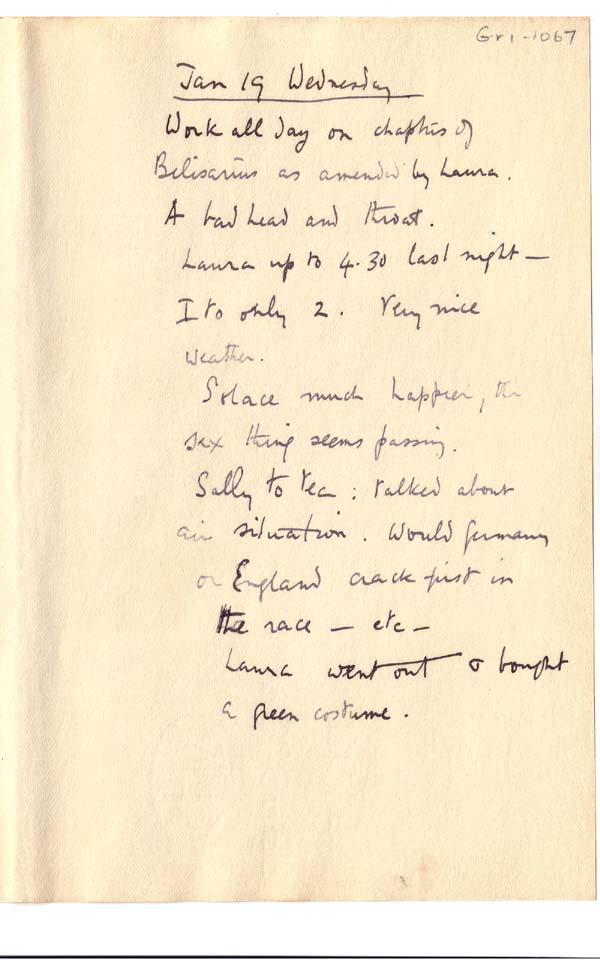 Gr1-1067
Jan 19 Wednesday
Work all day on chapters of
Belisarius as amended by Laura.
A bad head and throat.
Laura up to 4.30 last night —
I to only 2. Very nice
weather.
Solace much happier, the
sex thing seems passing.
Sally to tea : talked about
air situation. Would Germany
or England crack first in
the race — etc —
Laura went out & bought
a green costume.